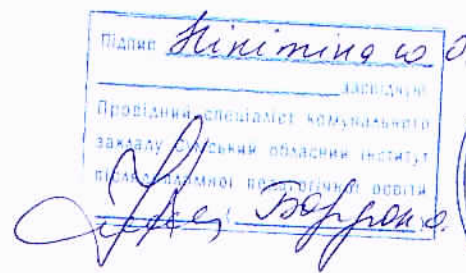 Підпис Нікітіна Ю О
засвідчую
Провідний спеціаліст комунального
закладу Сумський обласний інститут
післядипломної педагогічної освіти